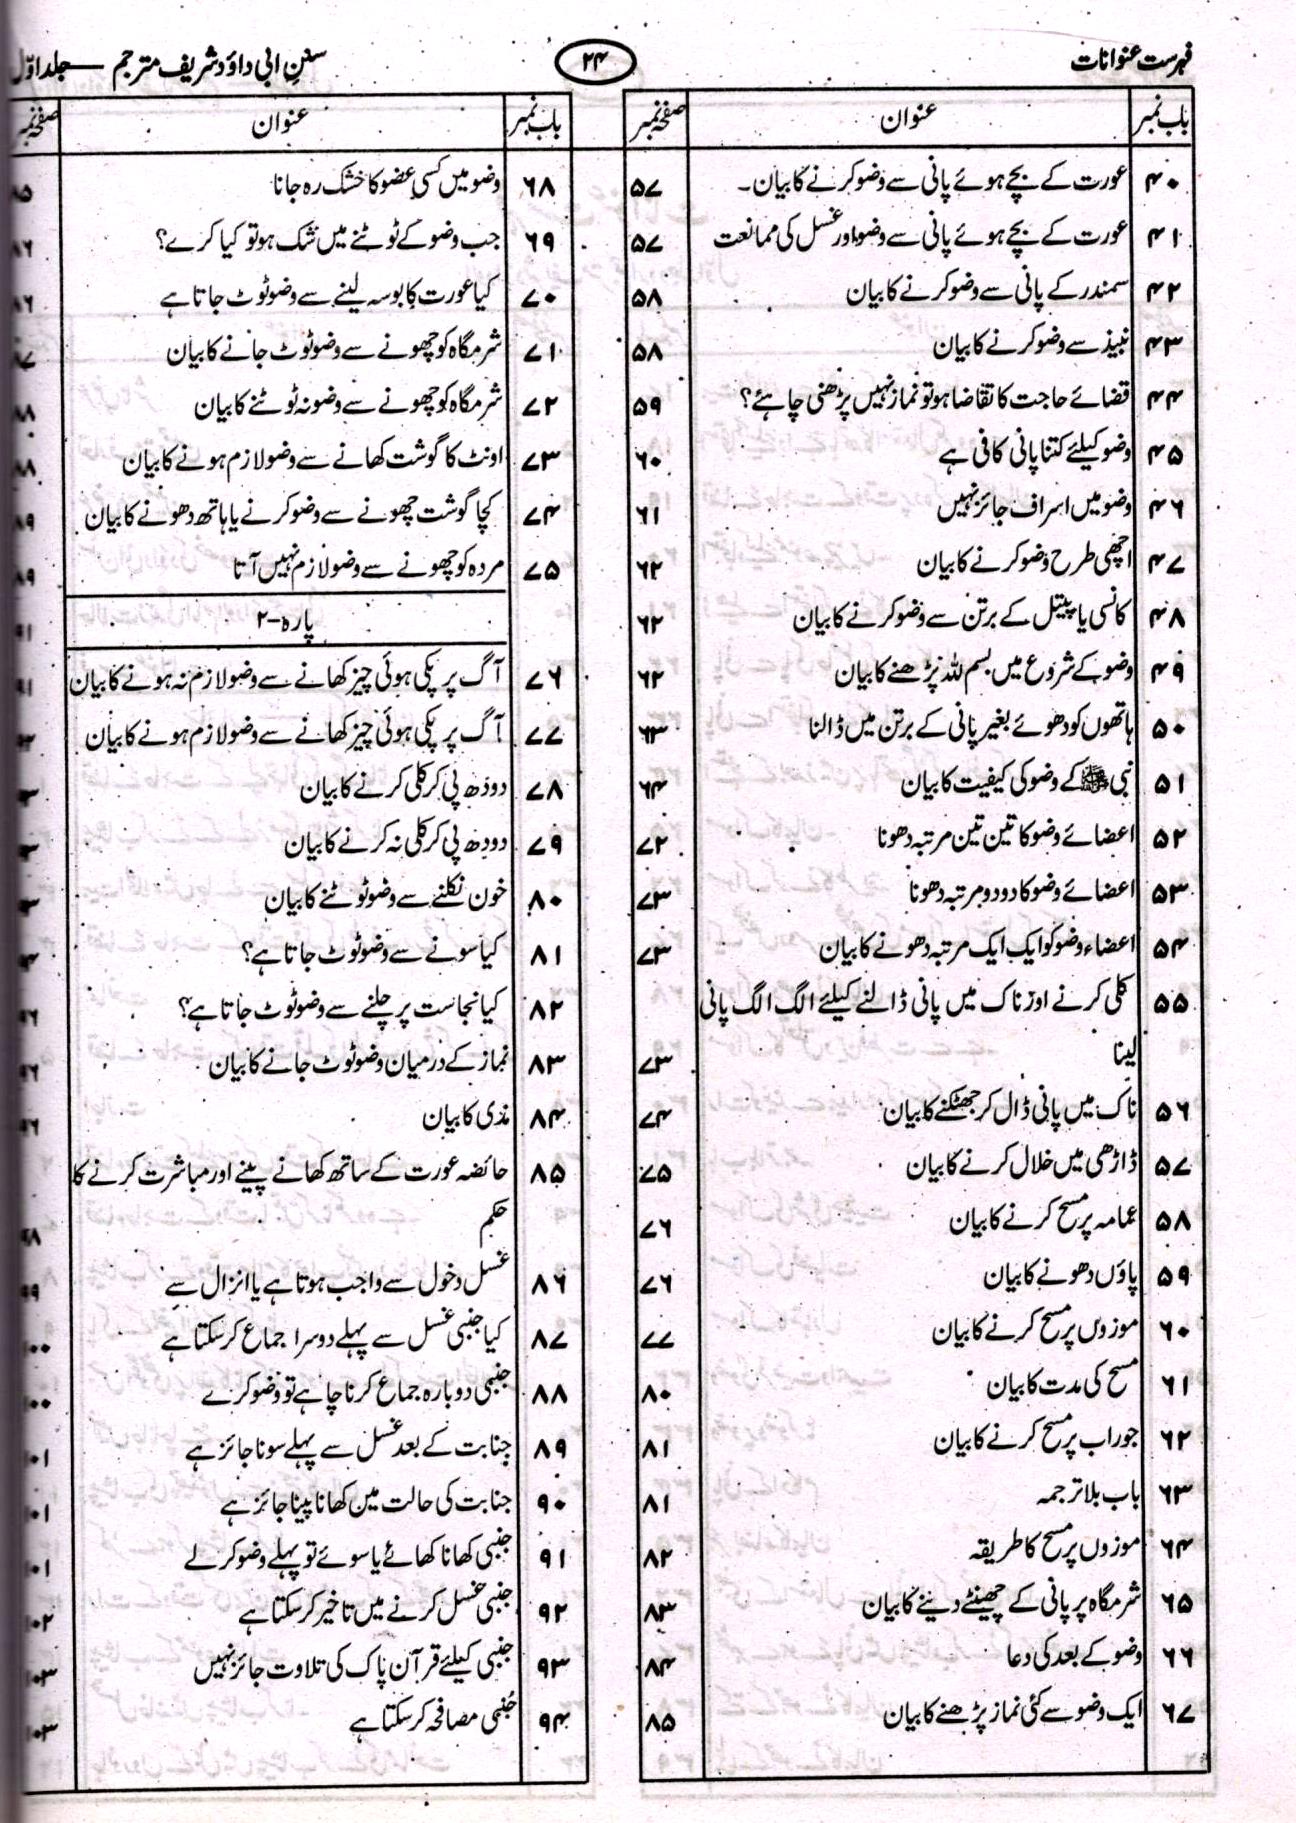 فہرست عنوانات
۲۴
سنن ابی داؤد شریف مترجم — جلد اوّل
باب نمبر عنوان صفحہ نمبر
۴۰ عورت کے بچے ہوئے پانی سے وضو کرنے کا بیان۔ ۵۷
۴۱ عورت کے بچے ہوئے پانی سے وضو اور غسل کی ممانعت ۵۷
۴۲ سمندر کے پانی سے وضو کرنے کا بیان ۵۸
۴۳ نبیذ سے وضو کرنے کا بیان ۵۸
۴۴ قضائے حاجت کا تقاضا ہو تو نماز نہیں پڑھنی چاہئے؟ ۵۹
۴۵ وضو کیلئے کتنا پانی کافی ہے ۶۰
۴۶ وضو میں اسراف جائز نہیں ۶۱
۴۷ اچھی طرح وضو کرنے کا بیان ۶۲
۴۸ کانسی یا پیتل کے برتن سے وضو کرنے کا بیان ۶۲
۴۹ وضو کے شروع میں بسم للہ پڑھنے کا بیان ۶۲
۵۰ ہاتھوں کو دھوئے بغیر پانی کے برتن میں ڈالنا ۶۳
۵۱ نبی ﷺ کے وضو کی کیفیت کا بیان ۶۴
۵۲ اعضائے وضو کا تین تین مرتبہ دھونا ۷۲
۵۳ اعضائے وضو کا دو دو مرتبہ دھونا ۷۳
۵۴ اعضاء وضو کو ایک ایک مرتبہ دھونے کا بیان ۷۳
۵۵ کلی کرنے اور ناک میں پانی ڈالنے کیلئے الگ الگ پانی
لینا ۷۳
۵۶ ناک میں پانی ڈال کر جھٹکنے کا بیان ۷۴
۵۷ ڈاڑھی میں خلال کرنے کا بیان ۷۵
۵۸ عمامہ پر مسح کرنے کا بیان ۷۶
۵۹ پاؤں دھونے کا بیان ۷۶
۶۰ موزوں پر مسح کرنے کا بیان ۷۷
۶۱ مسح کی مدت کا بیان ۸۰
۶۲ جوراب پر مسح کرنے کا بیان ۸۱
۶۳ باب بلا ترجمہ ۸۱
۶۴ موزوں پر مسح کا طریقہ ۸۲
۶۵ شرمگاہ پر پانی کے چھینٹے دینے کا بیان ۸۳
۶۶ وضو کے بعد کی دعا ۸۴
۶۷ ایک وضو سے کئی نماز پڑھنے کا بیان ۸۵
باب نمبر عنوان صفحہ نمبر
۶۸ وضو میں کسی عضو کا خشک رہ جانا ۸۵
۶۹ جب وضو کے ٹوٹنے میں شک ہو تو کیا کرے؟ ۸۶
۷۰ کیا عورت کا بوسہ لینے سے وضو ٹوٹ جاتا ہے ۸۶
۷۱ شرمگاہ کو چھونے سے وضو ٹوٹ جانے کا بیان
۷۲ شرمگاہ کو چھونے سے وضو نہ ٹوٹنے کا بیان ۸۸
۷۳ اونٹ کا گوشت کھانے سے وضو لازم ہونے کا بیان ۸۸
۷۴ کچا گوشت چھونے سے وضو کرنے یا ہاتھ دھونے کا بیان ۸۹
۷۵ مردہ کو چھونے سے وضو لازم نہیں آتا ۸۹
پارہ-۲ ۹۱
۷۶ آگ پر پکی ہوئی چیز کھانے سے وضو لازم نہ ہونے کا بیان ۹۱
۷۷ آگ پر پکی ہوئی چیز کھانے سے وضو لازم ہونے کا بیان
۷۸ دودھ پی کر کلی کرنے کا بیان
۷۹ دودھ پی کر کلی نہ کرنے کا بیان
۸۰ خون نکلنے سے وضو ٹوٹنے کا بیان
۸۱ کیا سونے سے وضو ٹوٹ جاتا ہے؟
۸۲ کیا نجاست پر چلنے سے وضو ٹوٹ جاتا ہے؟ ۹۶
۸۳ نماز کے درمیان وضو ٹوٹ جانے کا بیان ۹۶
۸۴ مذی کا بیان ۹۶
۸۵ حائضہ عورت کے ساتھ کھانے پینے اور مباشرت کرنے کا
حکم ۹۸
۸۶ غسل دخول سے واجب ہوتا ہے یا انزال سے ۹۹
۸۷ کیا جنبی غسل سے پہلے دوسرا جماع کر سکتا ہے ۱۰۰
۸۸ جنبی دوبارہ جماع کرنا چاہے تو وضو کرے ۱۰۰
۸۹ جنابت کے بعد غسل سے پہلے سونا جائز ہے ۱۰۱
۹۰ جنابت کی حالت میں کھانا پینا جائز ہے ۱۰۱
۹۱ جنبی کھانا کھائے یا سوئے تو پہلے وضو کر لے ۱۰۱
۹۲ جنبی غسل کرنے میں تاخیر کر سکتا ہے ۱۰۲
۹۳ جنبی کیلئے قرآن پاک کی تلاوت جائز نہیں ۱۰۳
۹۴ جُنبی مصافحہ کر سکتا ہے ۱۰۳